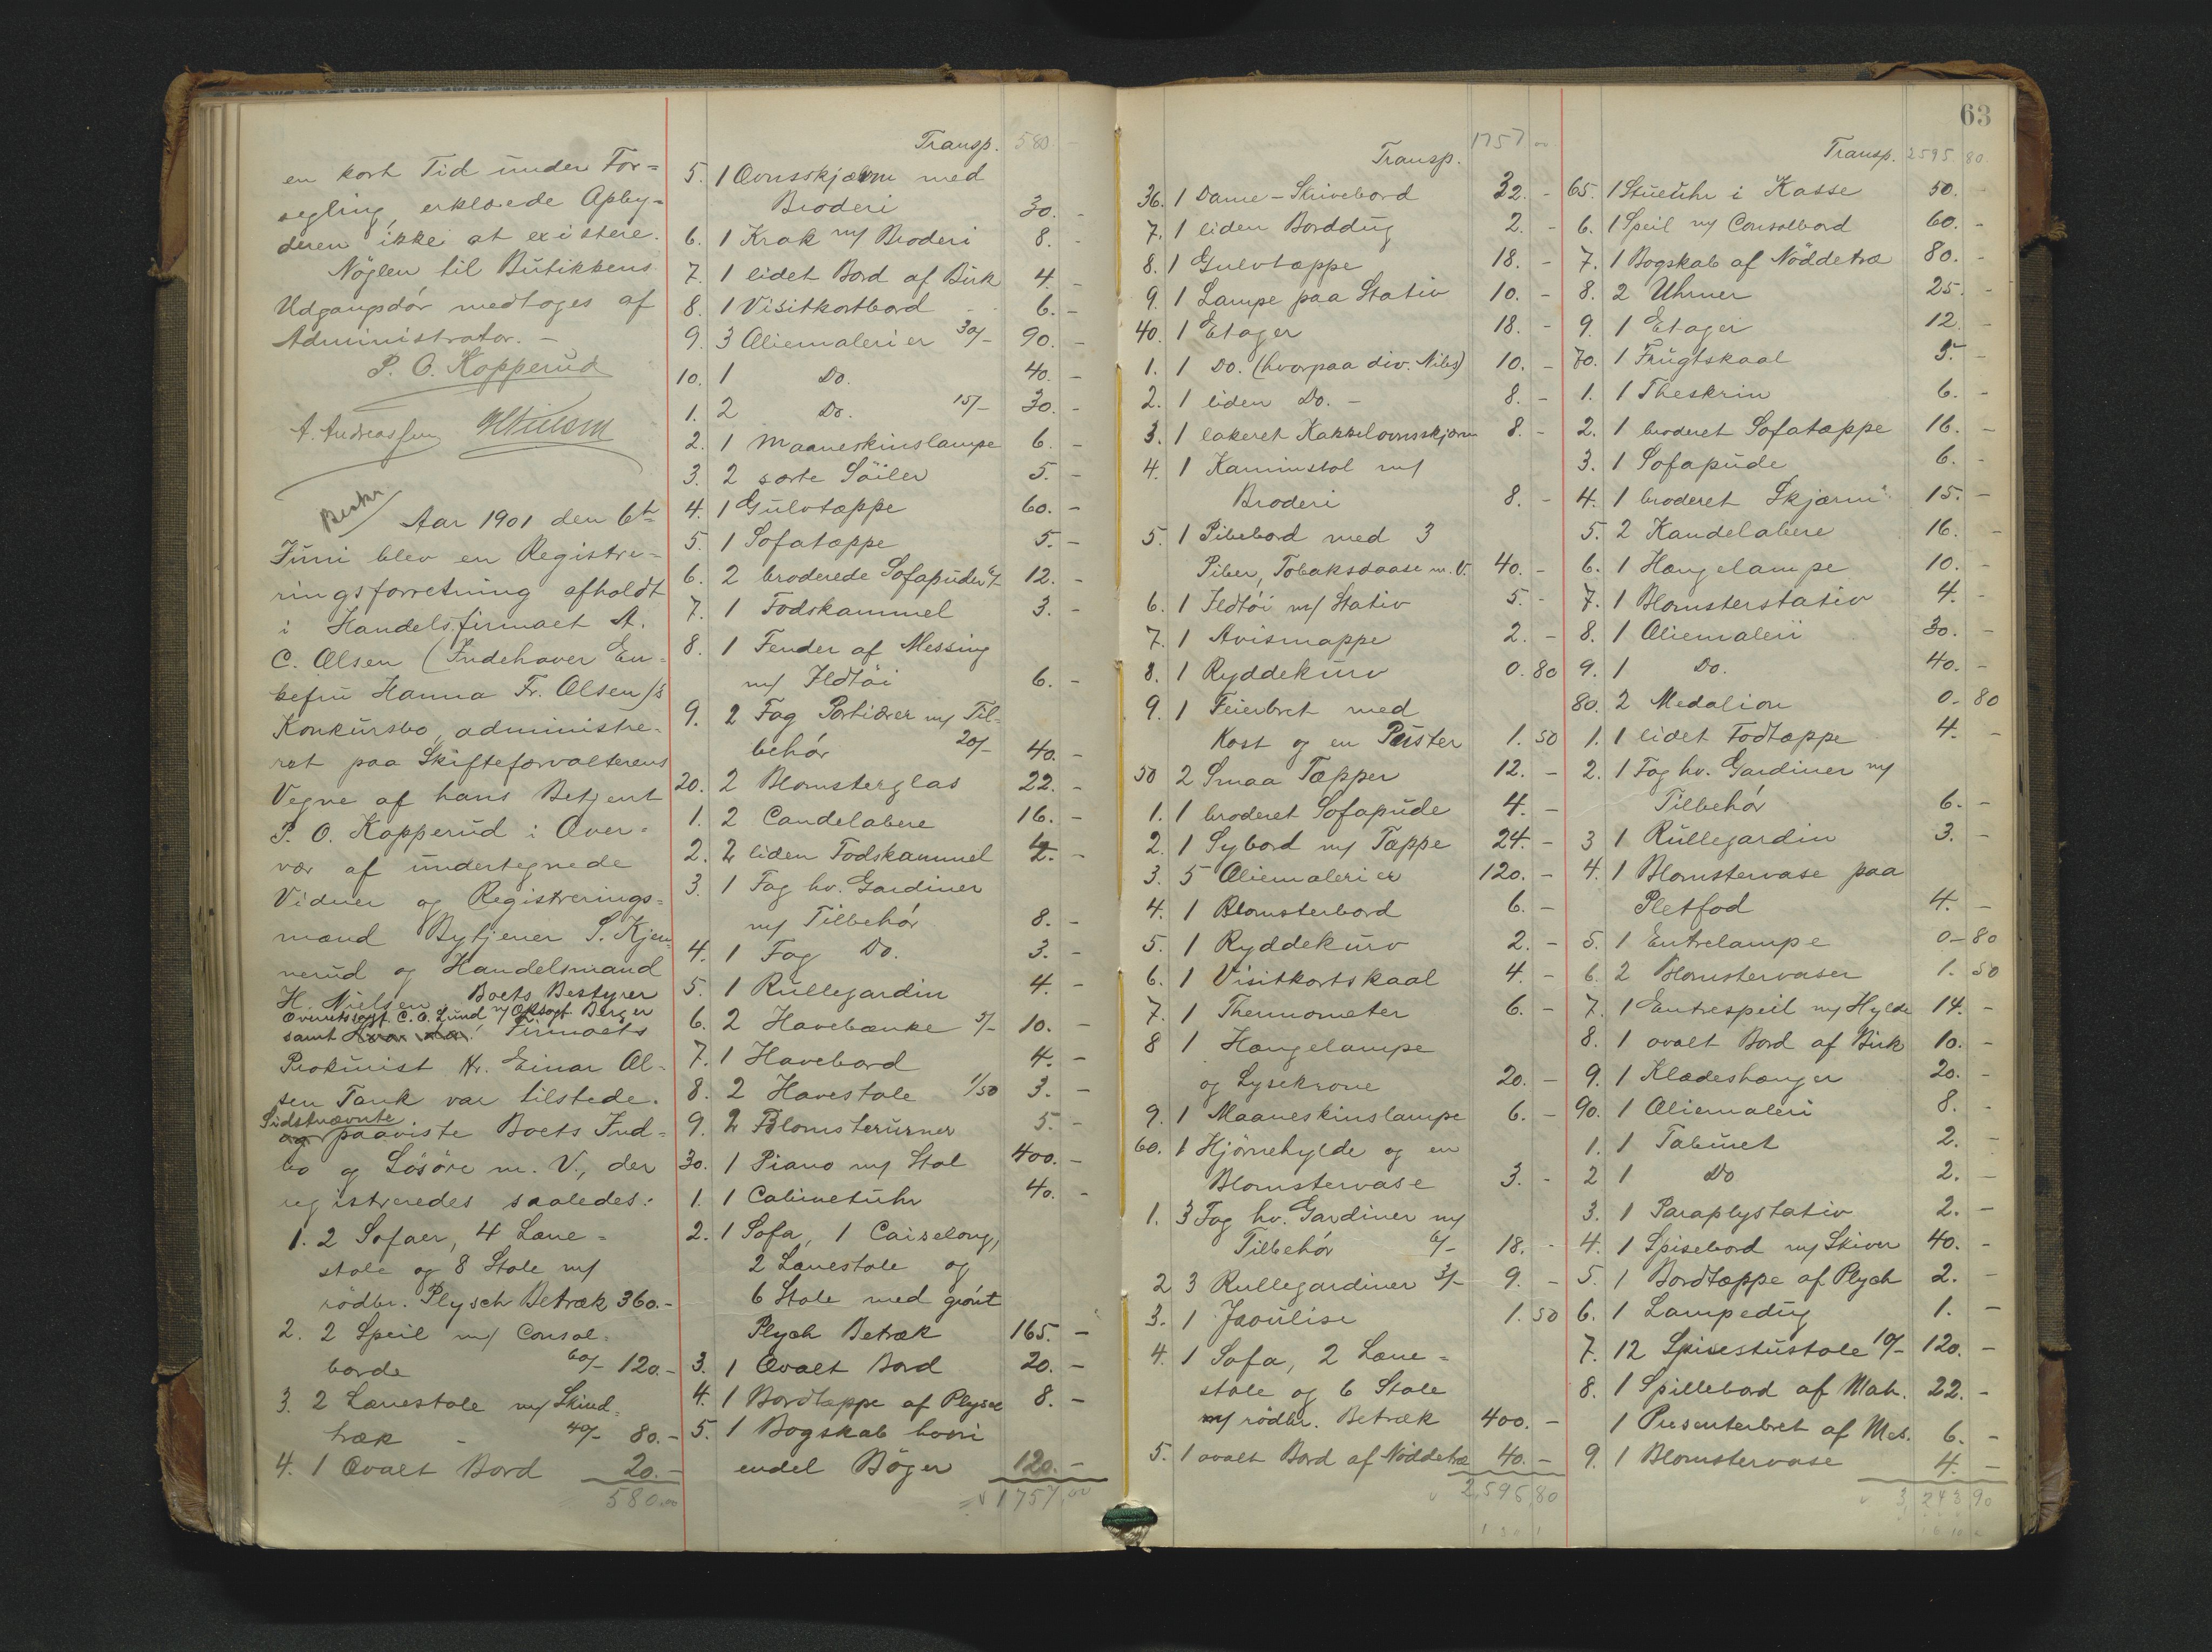 en kort Tid under For=
segling, erklærede Apby=
deren ikke at existere.
Nöglen til Butikkens
Udgangsdör medtoges af
Administrator. –
P. O. Kopperud
A. Andreassen HNielsen
Beskr.
Aar 1901 den 6te
Juni blev en Registre=
ringsforretning afholdt
i Handelsfirmaet A.
C. Olsen (Indehaver En=
kefru Hanna Fr. Olsen)s
Konkursbo, administre=
ret paa Skifteforvalterens
Vegne af hans Betjent
P. O. Kopperud i Over=
vær af undertegnede
Vidner og Registrerings=
mænd Bytjener S. Kjen=
nerud og Handelsmand
H. Nielsen. Boets Bestyrer
Overretssagf. C. O. Lund m/ Oksagf. Berger
samt Firmaets
Prokurist Hr. Einar Ol=
sen Tank var tilstede.
Sidstnævnte
og paaviste Boets Ind=
bo og Lösöre m. V., der
registreredes saaledes:
1. 2 Sofaer, 4 Læne=
stole og 8 Stole m/
rödbr. Plysch Betræk 360.–
2. 2 Speil m/ Consol=
borde 60/– 120.–
3. 2 Lænestole m/ Skind=
træk – 40/– 80.–
4. 1 Ovalt Bord 20.–
580.00
Transp. 580 –
5. 1 Ovnsskjærm med
Broderi 30. –
6. 1 Krak m/ Broderi 8. –
7. 1 lidet Bord af Birk 4. –
8. 1 Visitkortbord 6. –
9. 3 Oliemalerier 30/– 90. –
10. 1 Do. 40. –
1. 2 Do. 15/– 30. –
2. 1 Maaneskinslampe 6. –
3. 2 sorte Söiler 5. –
4. 1 Gulvtæppe 60. –
5. 1 Sofatæppe 5. –
6. 2 broderede Sofapuder 6/– 12. –
7. 1 Fodskammel 3. –
8. 1 Fender af Messing
m/ Ildtöi 6. –
9. 2 Fag Portiærer m/ Til=
behör 20/– 40. –
20. 2 Blomsterglas 22. –
1. 2 Candelabere 16. –
2. 2 liden Fodskammel 2. –
3. 1 Fag hv. Gardiner
m/ Tilbehör 8. –
4. 1 Fag Do. 3. –
5. 1 Rullegardin 4. –
6. 2 Havebænke 5/– 10. –
7. 1 Havebord 4. –
8. 2 Havestole 1/50 3. –
9. 2 Blomsterurner 5. –
30. 1 Piano m/ Stol 400. –
1. 1 Cabinetuhr 40. –
2. 1 Sofa, 1 Caiselong,
2 Lænestole og
6 Stole med grönt
Plych Betræk 165. –
3. 1 Ovalt Bord 20. –
4. 1 Bordtæppe af Plysch 8. –
5. 1 Bogskab hvori
endel Böger 120. –
1757,00
Transp. 1757 00
36. 1 Dame-Skrivebord 32. –
7. 1 liden Borddug 2. –
8. 1 Gulvtæppe 18. –
9. 1 Lampe paa Stativ 10. –
40. 1 Etager 18. –
1. 1 Do. (hvorpaa div. Nibs) 10. –
2. 1 liden Do. – 8. –
3. 1 lakeret Kakkelovnsskjærm 8. –
4. 1 Kaminstol m/
Broderi 8. –
5. 1 Pibebord med 3
Piber, Tobaksdaase m. V. 40. –
6. 1 Ildtöi m/ Stativ 5. –
7. 1 Avismappe 2. –
8. 1 Ryddekurv 0.80
9. 1 Feiebret med
Kost og en Puster 1.50
50 2 Smaa Tæpper 12. –
1. 1 broderet Sofapude 4. –
2. 1 Sybord m/ Tæppe 24. –
3. 5 Oliemalerier 120. –
4. 1 Blomsterbord 6. –
5. 1 Ryddekurv 2. –
6. 1 Visitkortskaal 4. –
7. 1 Thermometer 6. –
8 1 Hængelampe
og Lysekrone 20. –
9. 1 Maaneskinslampe 6. –
60. 1 Hjörnehylde og en
Blomstervase 3. –
1. 3 Fag hv. Gardiner m/
Tilbehör 6/– 18. –
2 3 Rullegardiner 3/– 9. –
3. 1 Javulise 1.50
4. 1 Sofa, 2 Læne=
stole og 6 Stole
m/ rödbr. Betræk 400. –
5. 1 ovalt Bord af Nöddetræ 40. –
2,595,80
63
Transp. 2595 80
65. 1 Stueuhr i Kasse 50. –
6. 1 Speil m/ Consolbord 60. –
7. 1 Bogskab af Nöddetræ 80. –
8. 2 Uhrner 25. –
9. 1 Etager 12. –
70. 1 Frugtskaal 5. –
1. 1 Theskrin 6. –
2. 1 broderet Sofatæppe 16. –
3. 1 Sofapude 6. –
4. 1 broderet Skjærm 15. –
5. 2 Kandelabere 16. –
6. 1 Hængelampe 10. –
7. 1 Blomsterstativ 4. –
8. 1 Oliemaleri 30. –
9. 1 Do. 40. –
80. 2 Medalion 0–80
1. 1 lidet Fodtæppe 4. –
2. 1 Fag hv. Gardiner m/
Tilbehör 6. –
3 1 Rullegardin 3. –
4. 1 Blomstervase paa
Pletfod 4. –
5. 1 Entrelampe 0–80
6. 2 Blomstervaser 1.50
7. 1 Entrespeil m/ Hylde 14. –
8. 1 ovalt Bord af Birk 10. –
9. 1 Klædeshænger 20. –
90. 1 Oliemaleri 8. –
1. 1 Taburet 2. –
2 1 Do 2. –
3. 1 Paraplystativ 2. –
4. 1 Spisebord m/ Skiver 40. –
5. 1 Bordtæppe af Plych 2. –
6. 1 Lampedug 1. –
7. 12 Spisestustole 10/– 120. –
8. 1 Spillebord af Mah. 22. –
1 Presenterbret af Mes. 6. –
9. 1 Blomstervase 4. –
3,243 90